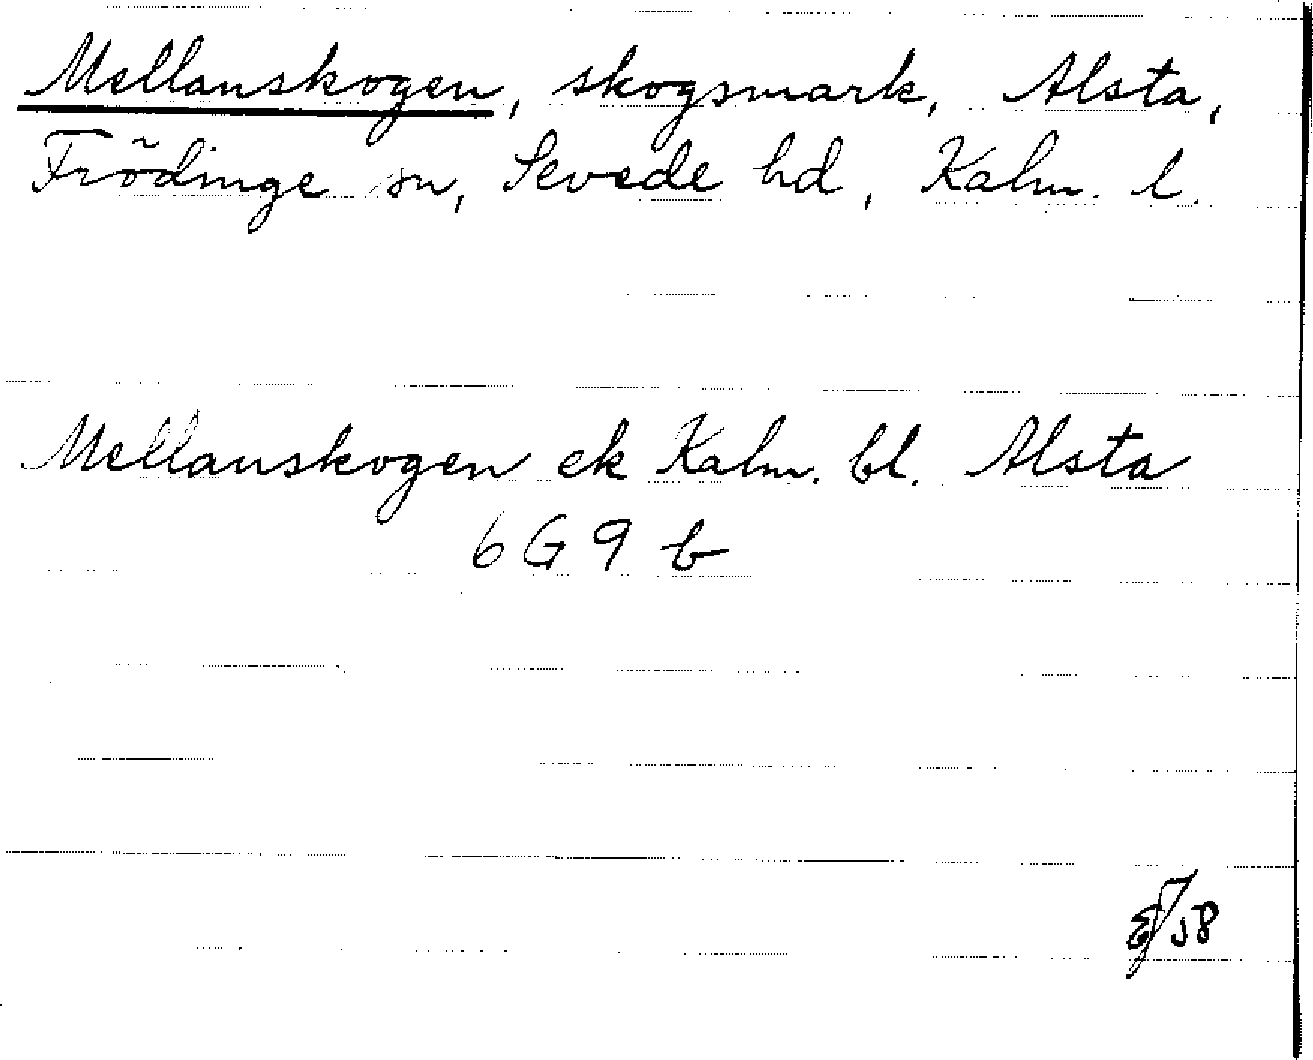 Mellanskogen, skogsmark, Alsta,
Frödinge sn, Sevede hd, Kalm. l.
Mellanskogen ek Kalm. bl. Alsta
6 G 9 b
58